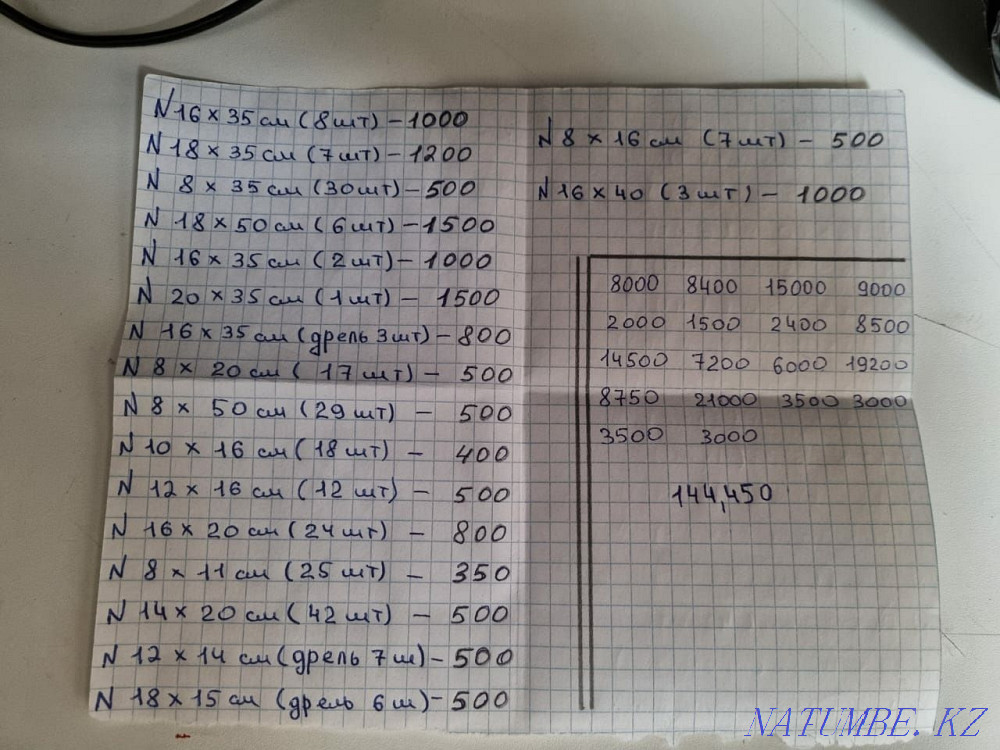 N 16 × 35 см (8 шт) – 1000
N 18 × 35 см (7 шт) – 1200
N 8 × 35 см (30 шт) – 500
N 18 × 50 см (6 шт) – 1500
N 16 × 35 см (2 шт) – 1000
N 20 × 35 см (1 шт) – 1500
N 16 × 35 см (дрель 3 шт) – 800
N 8 × 20 см (17 шт) – 500
N 8 × 50 см (29 шт) – 500
N 10 × 16 см (18 шт) – 400
N 12 × 16 см (12 шт) – 500
N 16 × 20 см (24 шт) – 800
N 8 × 11 см (25 шт) – 350
N 14 × 20 см (42 шт) – 500
N 12 × 14 см (дрель 7 ш) – 500
N 18 × 15 см (дрель 6 ш) – 500
N 8 × 16 см (7 шт) – 500
N 16 × 40 (3 шт) – 1000
8000 8400 15000 9000
2000 1500 2400 8500
14500 7200 6000 19200
8750 21000 3500 3000
3500 3000
144,450
NATUMBE.KZ